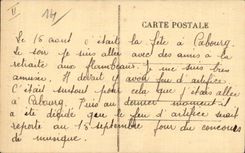 II
CARTE POSTALE
Le 15 aout c'était la fête à Cabourg.
Le soir je suis allée avec des amies à la
retraite aux flambeaux. Je me suis très
amusée. Il devait y avoir feu d'artifice.
C'était surtout pour cela que j'étais allée
à Cabourg. Puis au dernier moment il
a été décidé que le feu d'artifice serait
reporté au 15 septembre jour du concours
de musique.